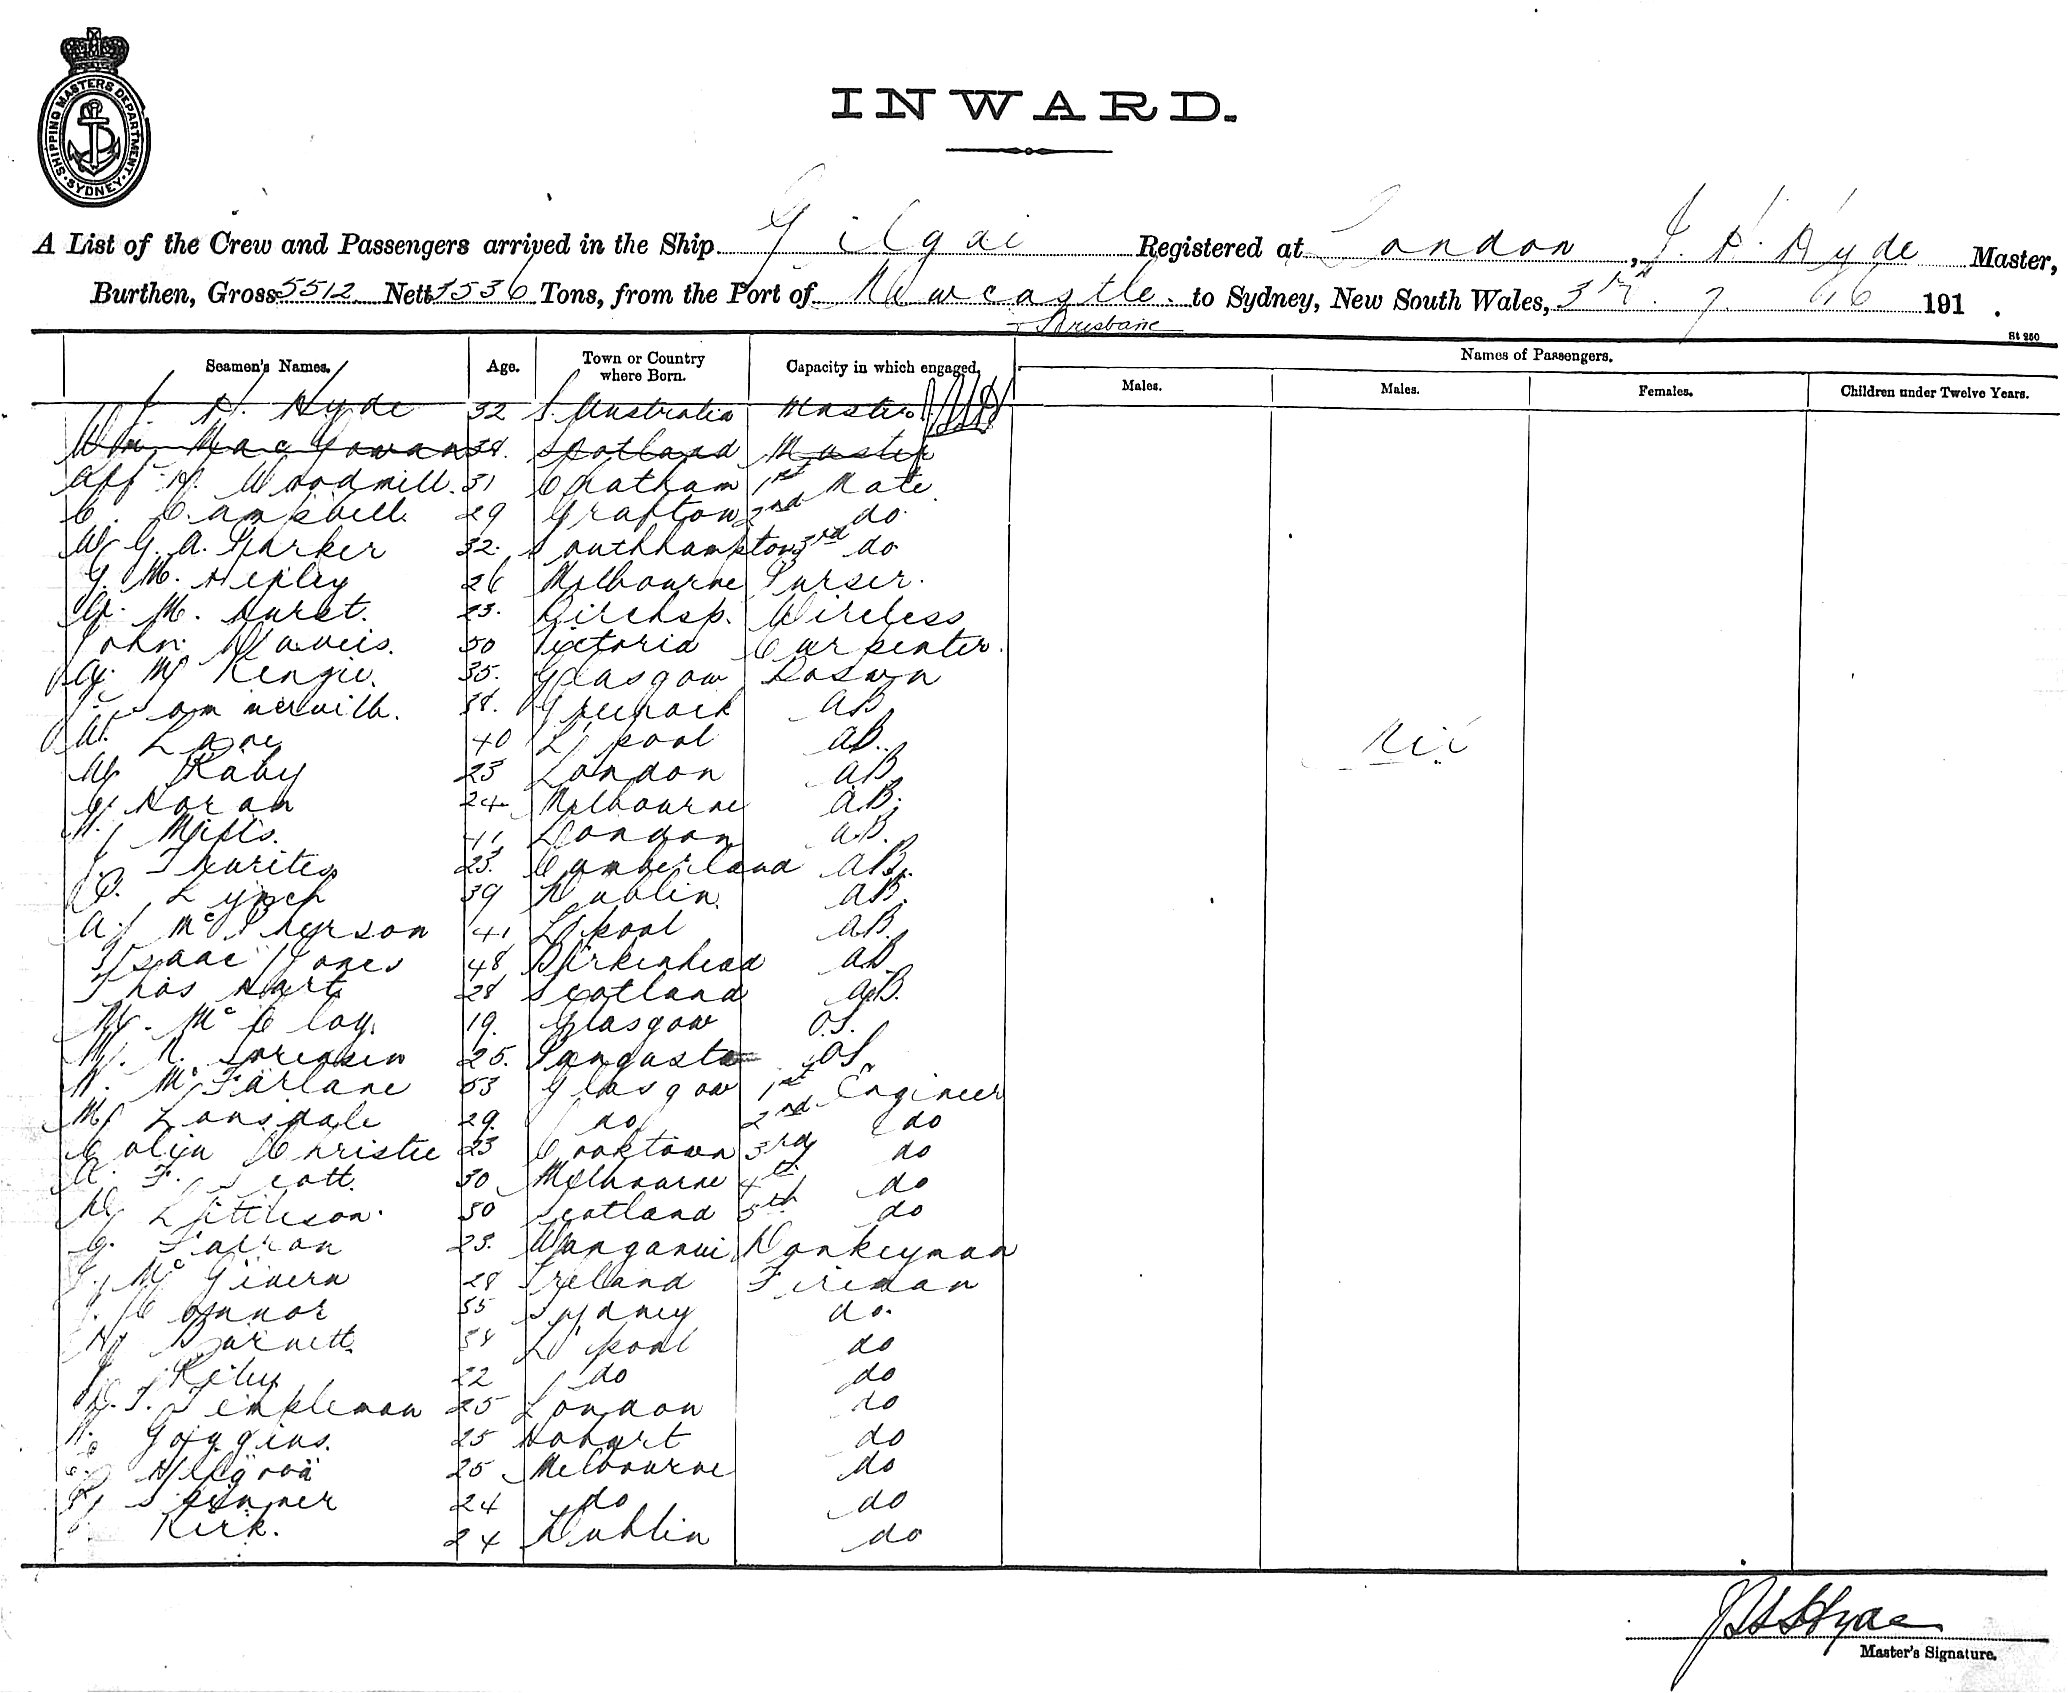 SHIPPING MASTERS DEPARTMENT · SYDNEY ·
INWARD.
A List of the Crew and Passengers arrived in the Ship Gilgai Registered at London, J. H. Hyde Master,
Burthen, Gross 5512 Nett 3536 Tons, from the Port of Newcastle. to Sydney, New South Wales, 3rd. 7 16 191 .
+ Brisbane
St 250
Seamen's Names. Age. Town or Country where Born. Capacity in which engaged. Names of Passengers.
Males. Males. Females. Children under Twelve Years.
J. H. Hyde 32 S. Australia Master JHH
Wm MacGowan 38. Scotland Master
Alf. H. Woodmill. 31 Chatham 1st Mate
C. Campbell. 29 Grafton 2nd do.
W G. A. Parker 32. Southhampton 3rd do
G. M. Hepley 26 Melbourne Purser.
M. Hurst. 23. Wireless
John Daveis. 50 Victoria Carpenter.
35. Glasgow Boswn
38. Greenock AB
W. Lane 40 L'pool AB.
W Raby 23 London AB
Horan 24 Melbourne AB.
H. Mills. 41 London AB.
J. Thwrites 23. Cumberland AB.
P. Lynch 39 Dublin. AB.
A. McPherson 41 L'pool AB.
Isaac Jones 48 Birkenhead AB
Thos Hart 28 Scotland AB.
W. McCloy. 19. Glasgow O.S.
25. OS.
H. McFarlane 53 Glasgow 1st Engineer
M Lonsdale 29. do 2nd do
Colin Christie 23 Cooktown 3rd do
A. F. Scott. 30 Melbourne 4th do
30 Scotland 5th do
G. Farron 23. Wanganui Donkeyman
J. McGivern 28 Ireland Fireman
J. Connor 35 Sydney do.
H Barnett. 38 L'pool do
J Riley 22 do do
T. Templeman 25 London do
H. Goggins. 25 Hobart do
25 Melbourne do
Skinner 24 do do
Kirk. 24 Dublin do
Nil
J H Hyde
Master's Signature.